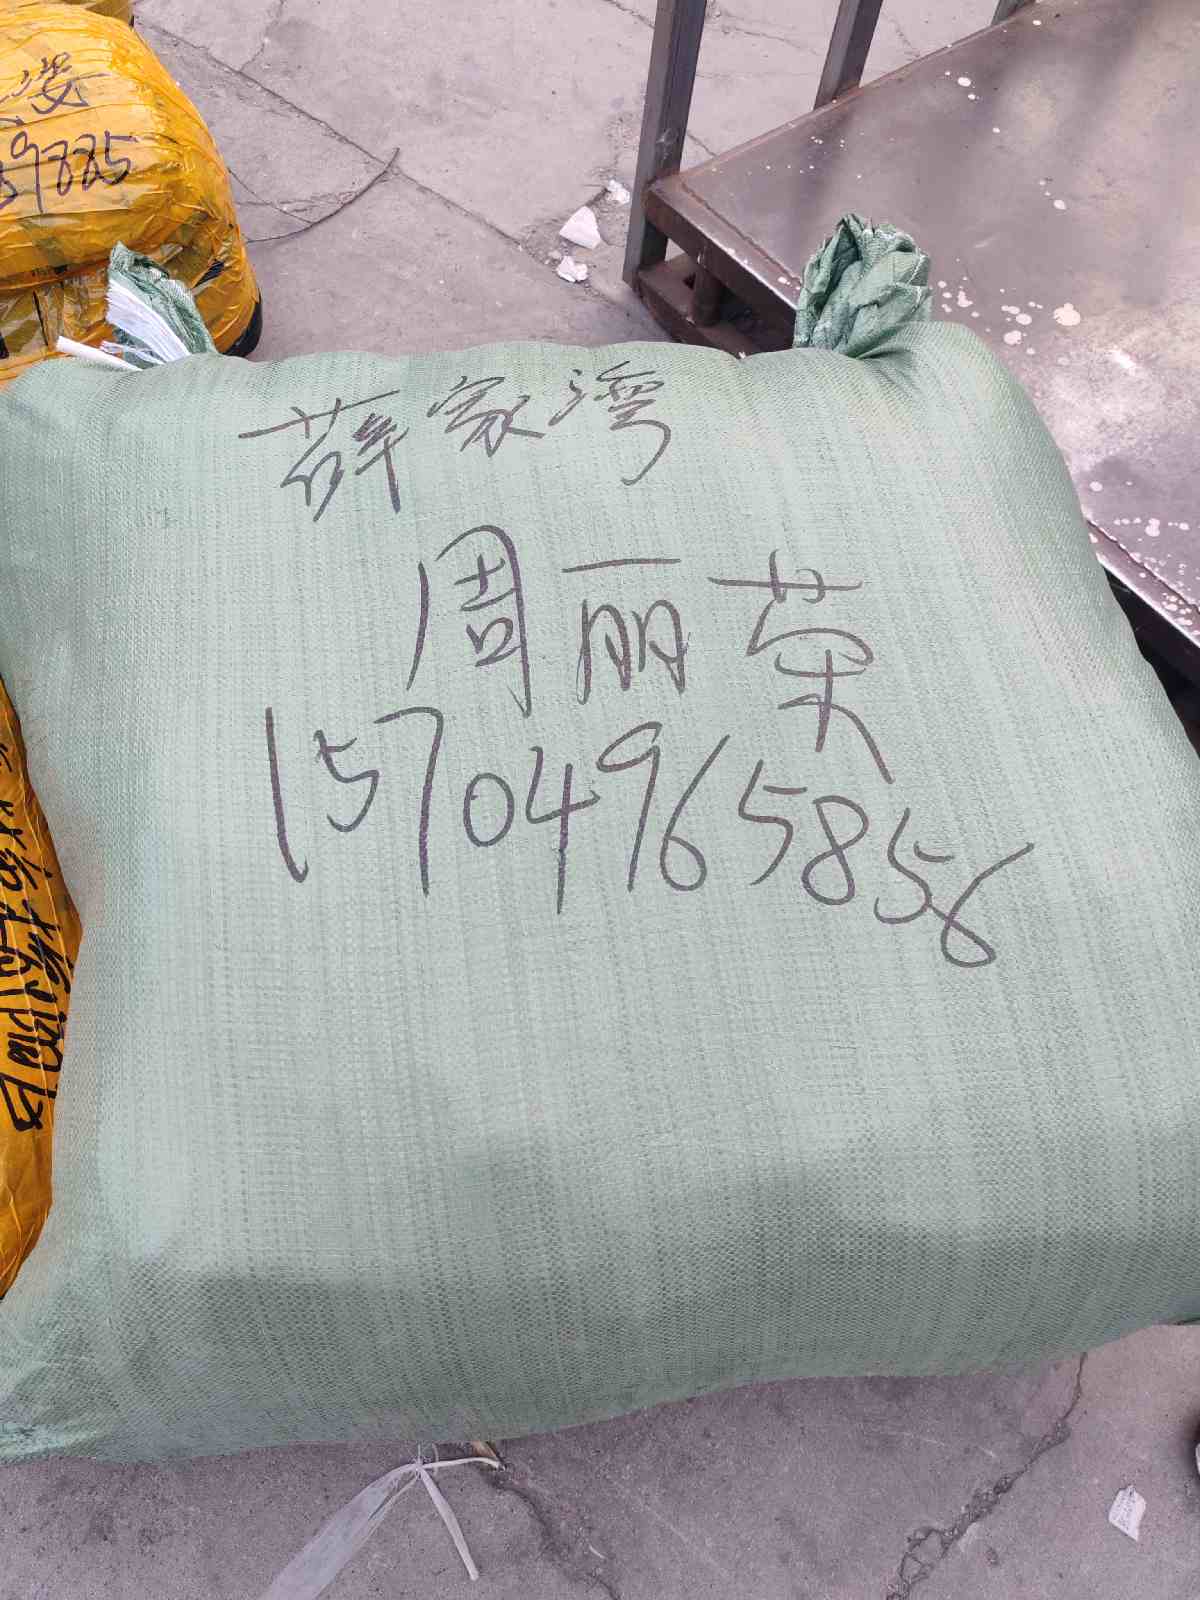 薛家湾
周丽荣
15704965856